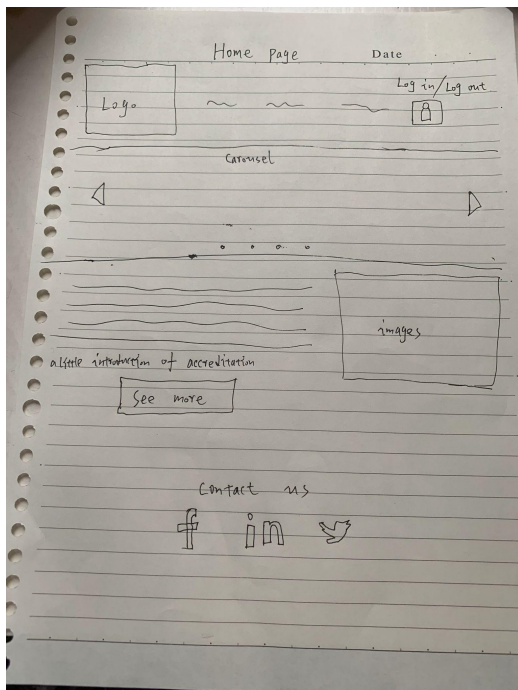 Home page
Date
Log in/Log out
Logo
Carousel
images
a little introduction of accreditation
See more
Contact us
f in